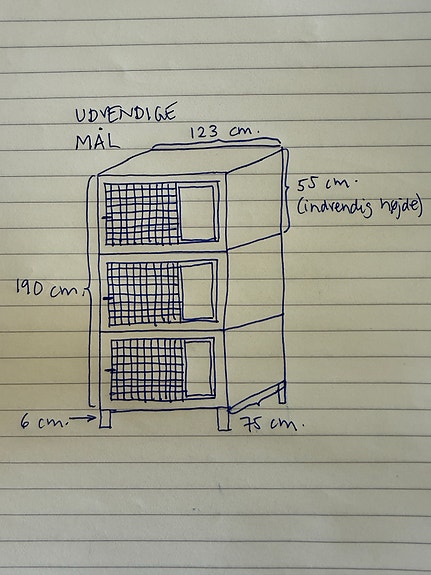 UDVENDIGE
MÅL
123 cm.
55 cm.
(indvendig højde)
190 cm.
6 cm.
75 cm.